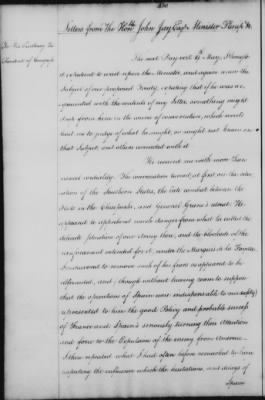 Letters from The Honble John Jay Esqr Minister Plenipo &c.
The next Day viz. 19th May, I thought
it expedient to wait upon the Minister, and again renew the
Subject of our proposed Treaty, expecting that if he was ac-
quainted with the contents of my letter, something might
drop from him in the course of conversation, which would
lead me to judge of what he might, or might not know on
that Subject, and others connected with it.
He received me with more than
usual cordiality. The conversation turned, at first on the situ-
ation of the Southern States, the late combat between the
fleets in the Chesapeake, and General Green's retreat. He
appeared to apprehend much danger from what he called the
delicate situation of our army there, and the blockade of the
reinforcement intended for it, under the Marquis de la Fayette.
I endeavoured to remove such of his fears as appeared to be
ill founded, and, (though without leaving room to suppose
that the operations of Spain were indispensable to our safety)
represented to him the good Policy and probable success
of France and Spain's seriously turning their Attention
and force to the Expulsion of the enemy from America.
I then repeated what I had often before remarked to him
respecting the influence which the hesitations, and delays of
Spain